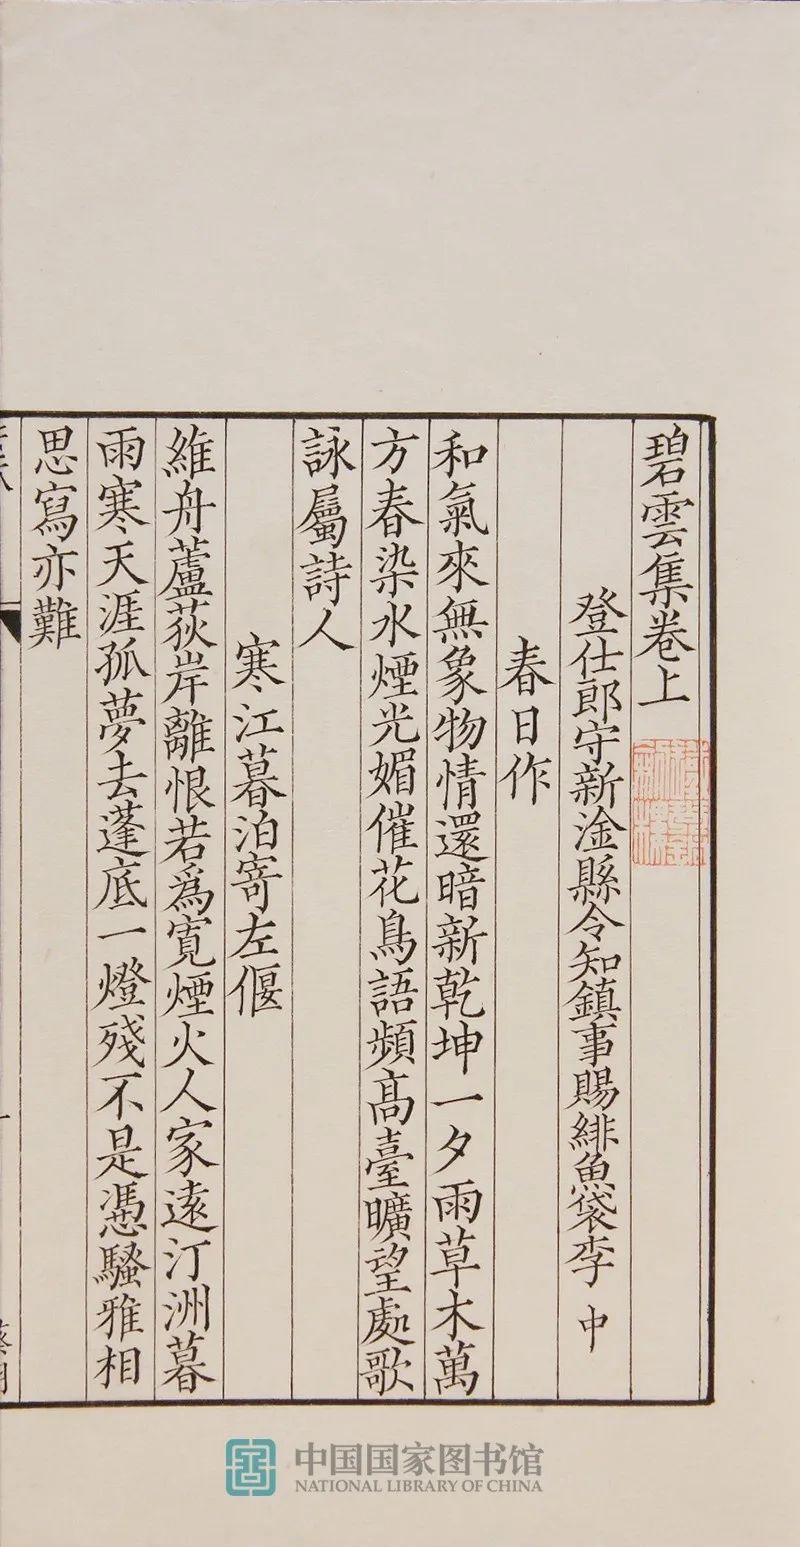 碧雲集卷上
登仕郎守新淦縣令知鎮事賜緋魚袋李中
春日作
和氣來無象物情還暗新乾坤一夕雨草木萬
方春染水煙光媚催花鳥語頻高臺曠望處歌
詠屬詩人
寒江暮泊寄左偃
維舟蘆荻岸離恨若爲寬煙火人家遠汀洲暮
雨寒天涯孤夢去蓬底一燈殘不是憑騷雅相
思寫亦難
中国国家图书馆
NATIONAL LIBRARY OF CHINA